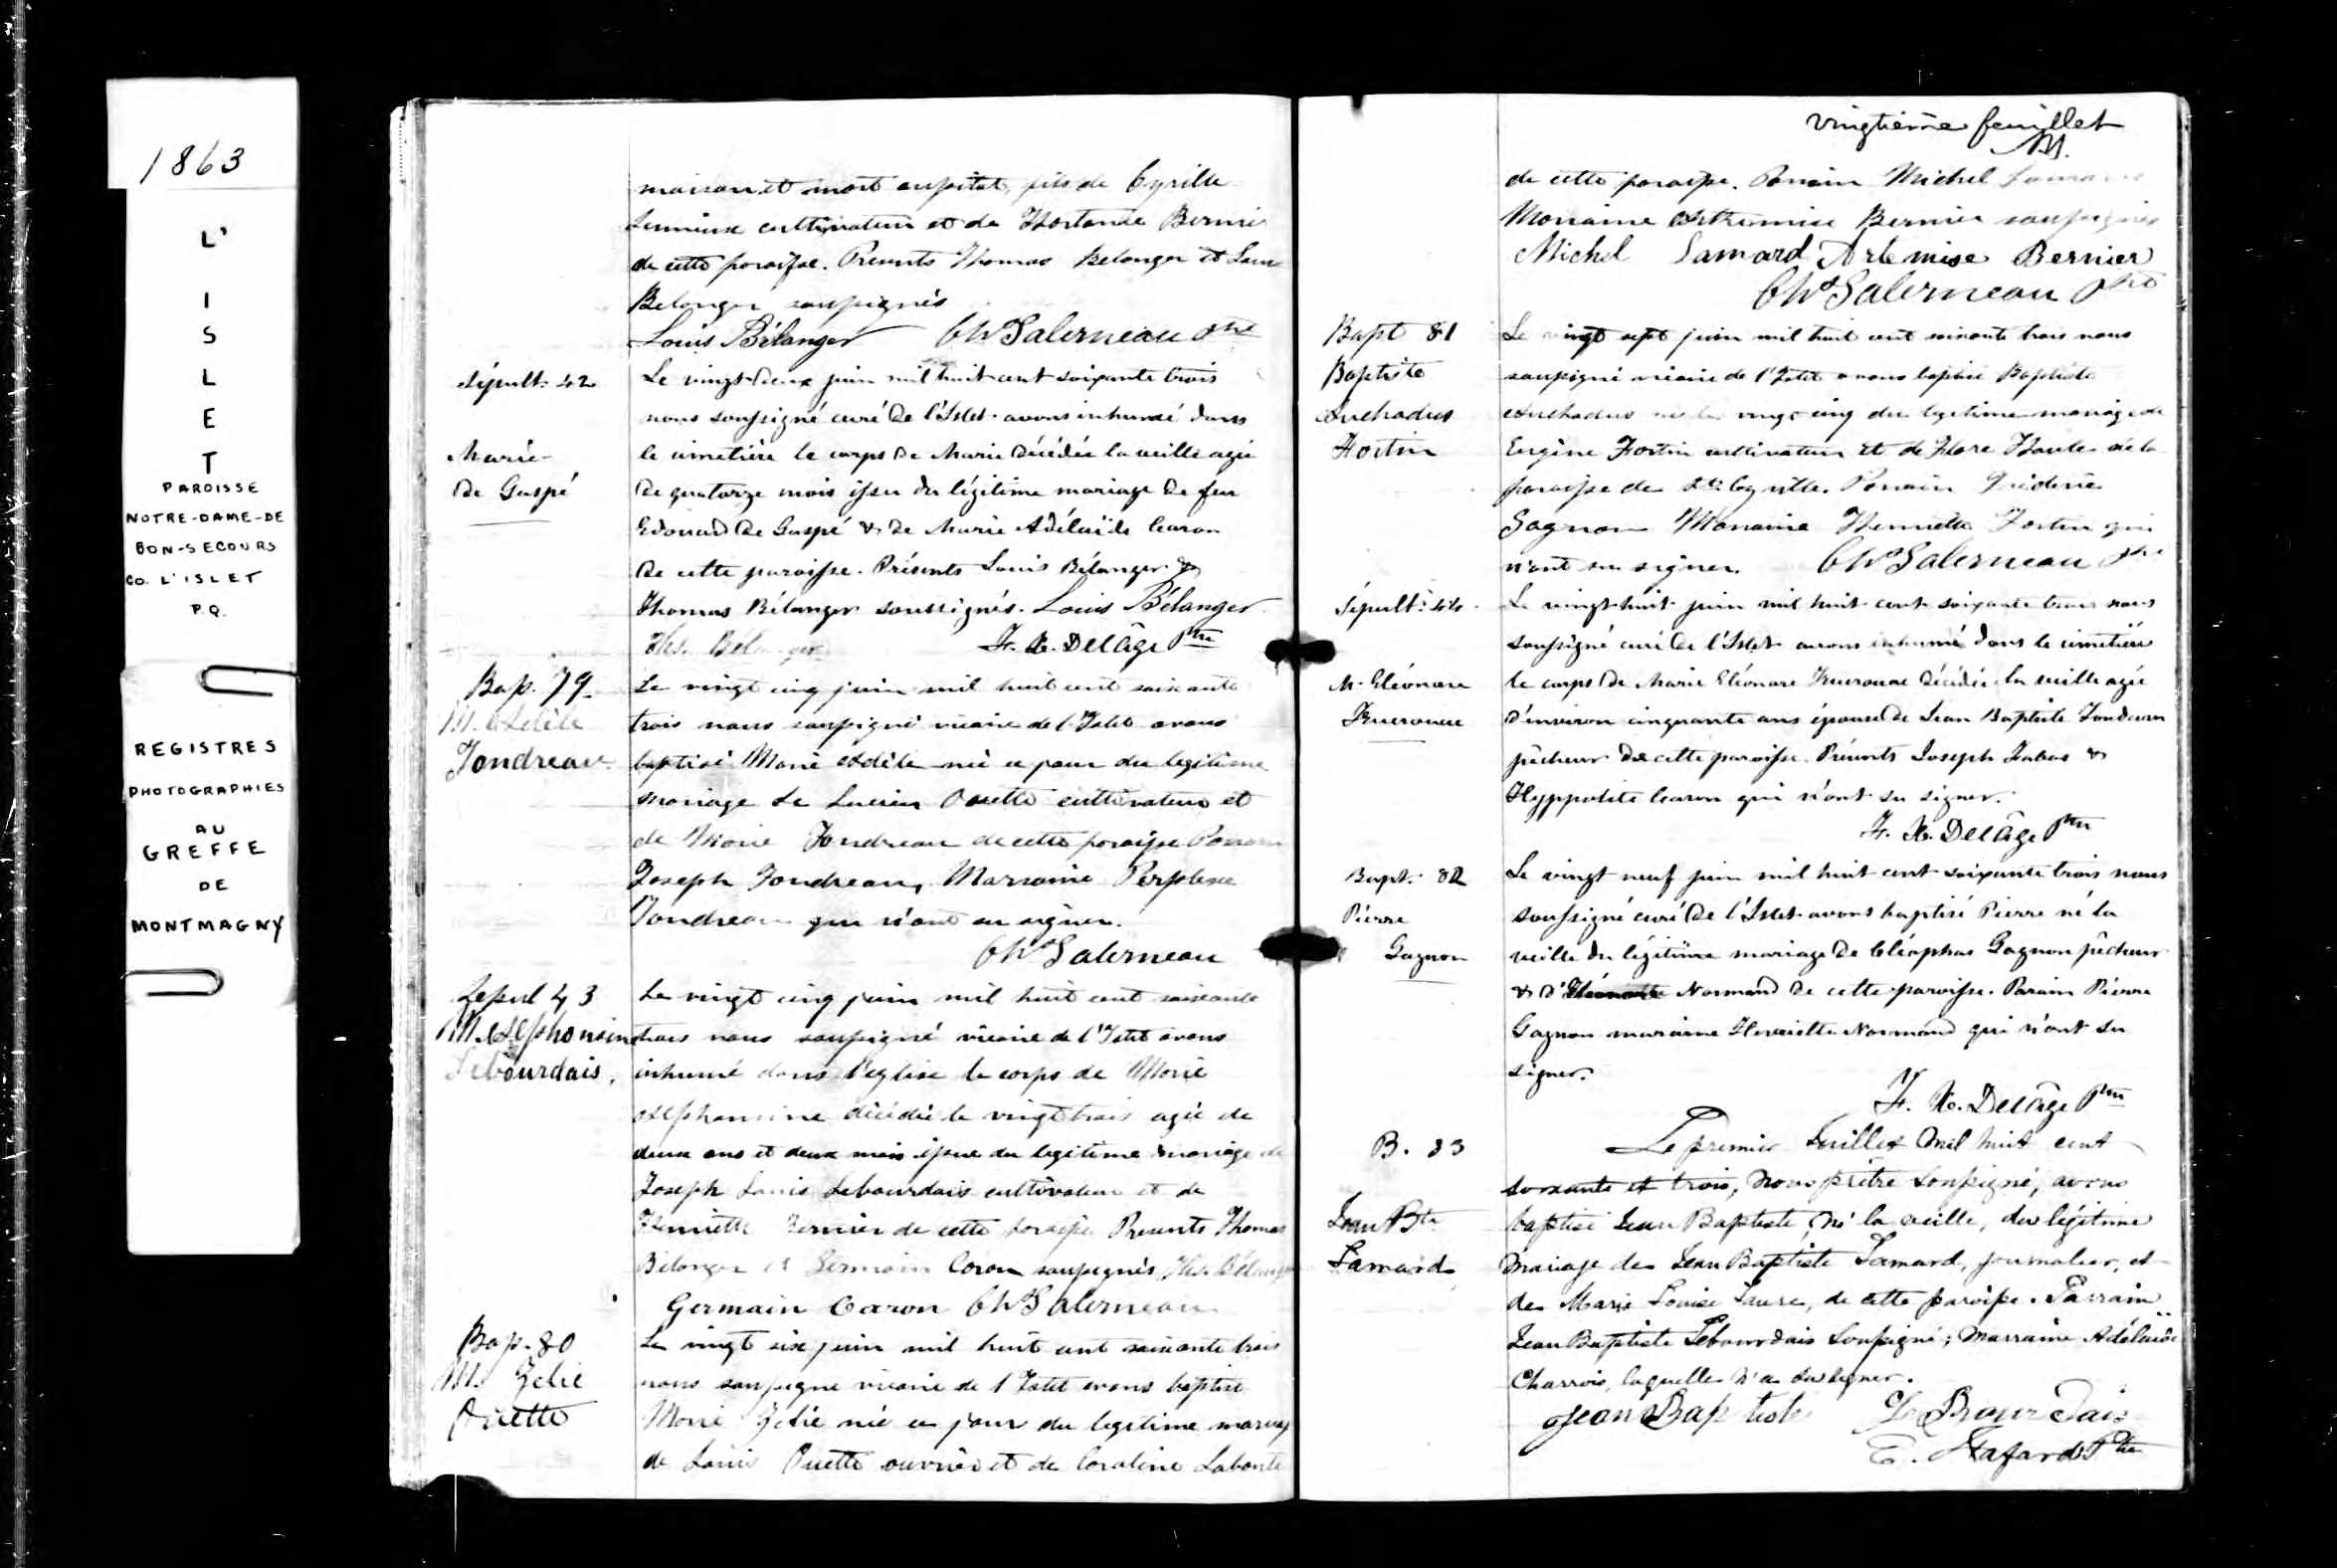 1863
L'
I
S
L
E
T
PAROISSE
NOTRE-DAME-DE
BON-SECOURS
CO. L'ISLET
P.Q.
REGISTRES
PHOTOGRAPHIES
AU
GREFFE
DE
MONTMAGNY
maison et mort aussitot, fils de Cyrille
Lemieux cultivateur et de Hortense Bernier
de cette paroisse. Presents Thomas Belanger et Louis
Belanger soussignés
Louis Bélanger Chs Galerneau ptre
Sépult. 42
Marie
De Gaspé
Le vingt-deux juin mil huit cent soixante trois
nous soussigné curé de l'Islet avons inhumé dans
le cimetière le corps de Marie décédée la veille agée
de quatorze mois issu du légitime mariage de feu
Edouard De Gaspé & de Marie Adélaïde Caron
de cette paroisse. Présents Louis Bélanger &
Thomas Bélanger soussignés. Louis Bélanger
Ths. Belanger F. X. Delâge Ptre
Bap. 79.
M. Adèle
Fondreau
Le vingt cinq juin mil huit cent soixante
trois nous soussigné vicaire de l'Islet avons
baptisé Marie Adèle née ce jour du legitime
mariage de Lucien Ouette cultivateur et
de Marie Fondreau de cette paroisse Parrain
Joseph Fondreau, Marraine
Fondreau qui n'ont su signer.
Chs Galerneau
Sepul 43
M. Alphonsine
Lebourdais.
Le vingt cinq juin mil huit cent soixante
trois nous soussigné vicaire de l'Islet avons
inhumé dans l'eglise le corps de Marie
Alphonsine décédée le vingt trois agée de
deux ans et deux mois issue du legitime mariage de
Joseph Louis Lebourdais cultivateur et de
Henriette Bernier de cette paroisse Presents Thomas
Belanger et Germain Caron soussignés Ths. Bélanger
Germain Caron Chs Galerneau
Bap. 80
M. Zelie
Ouette
Le vingt six juin mil huit cent soixante trois
nous soussigné vicaire de l'Islet avons baptisé
Marie Zelie née ce jour du legitime mariage
de Louis Ouette ouvrier et de Caroline Labonté
vingtième feuillet
de cette paroisse. Parrain Michel
Marraine Arthemise Bernier soussignés
Michel Lamard Artemise Bernier
Chs Galerneau ptre
Bapt 81
Baptiste
Fortin
Le vingt sept juin mil huit cent soixante trois nous
soussigné vicaire de l'Islet avons baptisé Baptiste
né le vingt cinq du legitime mariage de
Eugène Fortin cultivateur et de Flore de la
paroisse de St Cyrille. Parrain Fréderic
Gagnon Marraine Henriette Fortin qui
n'ont su signer. Chs Galerneau ptre
Sépult: 44
M. Eléonore
Le vingt-huit juin mil huit cent soixante trois nous
soussigné curé de l'Islet avons inhumé dans le cimetière
le corps de Marie Eléonore décédée la veille agée
d'environ cinquante ans épouse de Jean Baptiste Fondreau
pêcheur de cette paroisse. Présents Joseph &
Hyppolite Caron qui n'ont su signer.
F. X. Delâge Ptre
Bapt. 82
Pierre
Gagnon
Le vingt neuf juin mil huit cent soixante trois nous
soussigné curé de l'Islet avons baptisé Pierre né la
veille du légitime mariage de Cléophas Gagnon pêcheur
& d' Normand de cette paroisse. Parain Pierre
Gagnon maraine Henriette Normand qui n'ont su
signer.
F. X. Delâge Ptre
B. 83
Jean Bte
Lamard
Le premier Juillet mil huit cent
soixante et trois, nous prêtre soussigné, avons
baptisé Jean Baptiste, né la veille, du légitime
mariage de Jean Baptiste Lamard, journalier, et
de Marie Louise, de cette paroisse. Parrain
Jean Baptiste Lebourdais soussigné; marraine Adélaïde
Charrois, laquelle n'a su signer.
Jean Baptiste Le Bour Dais
E. Hafard Ptre